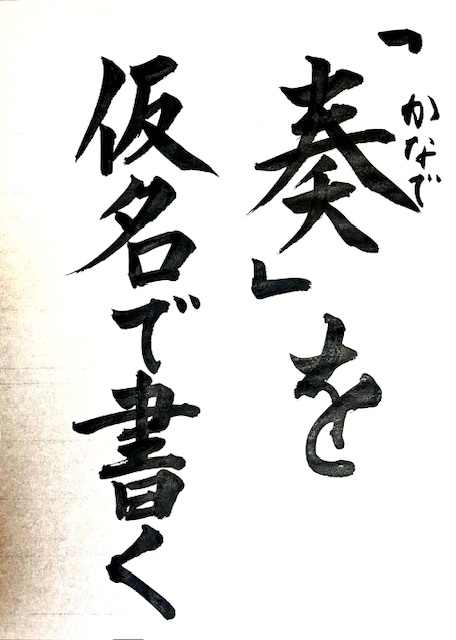 「奏」を
かなで
仮名で書く